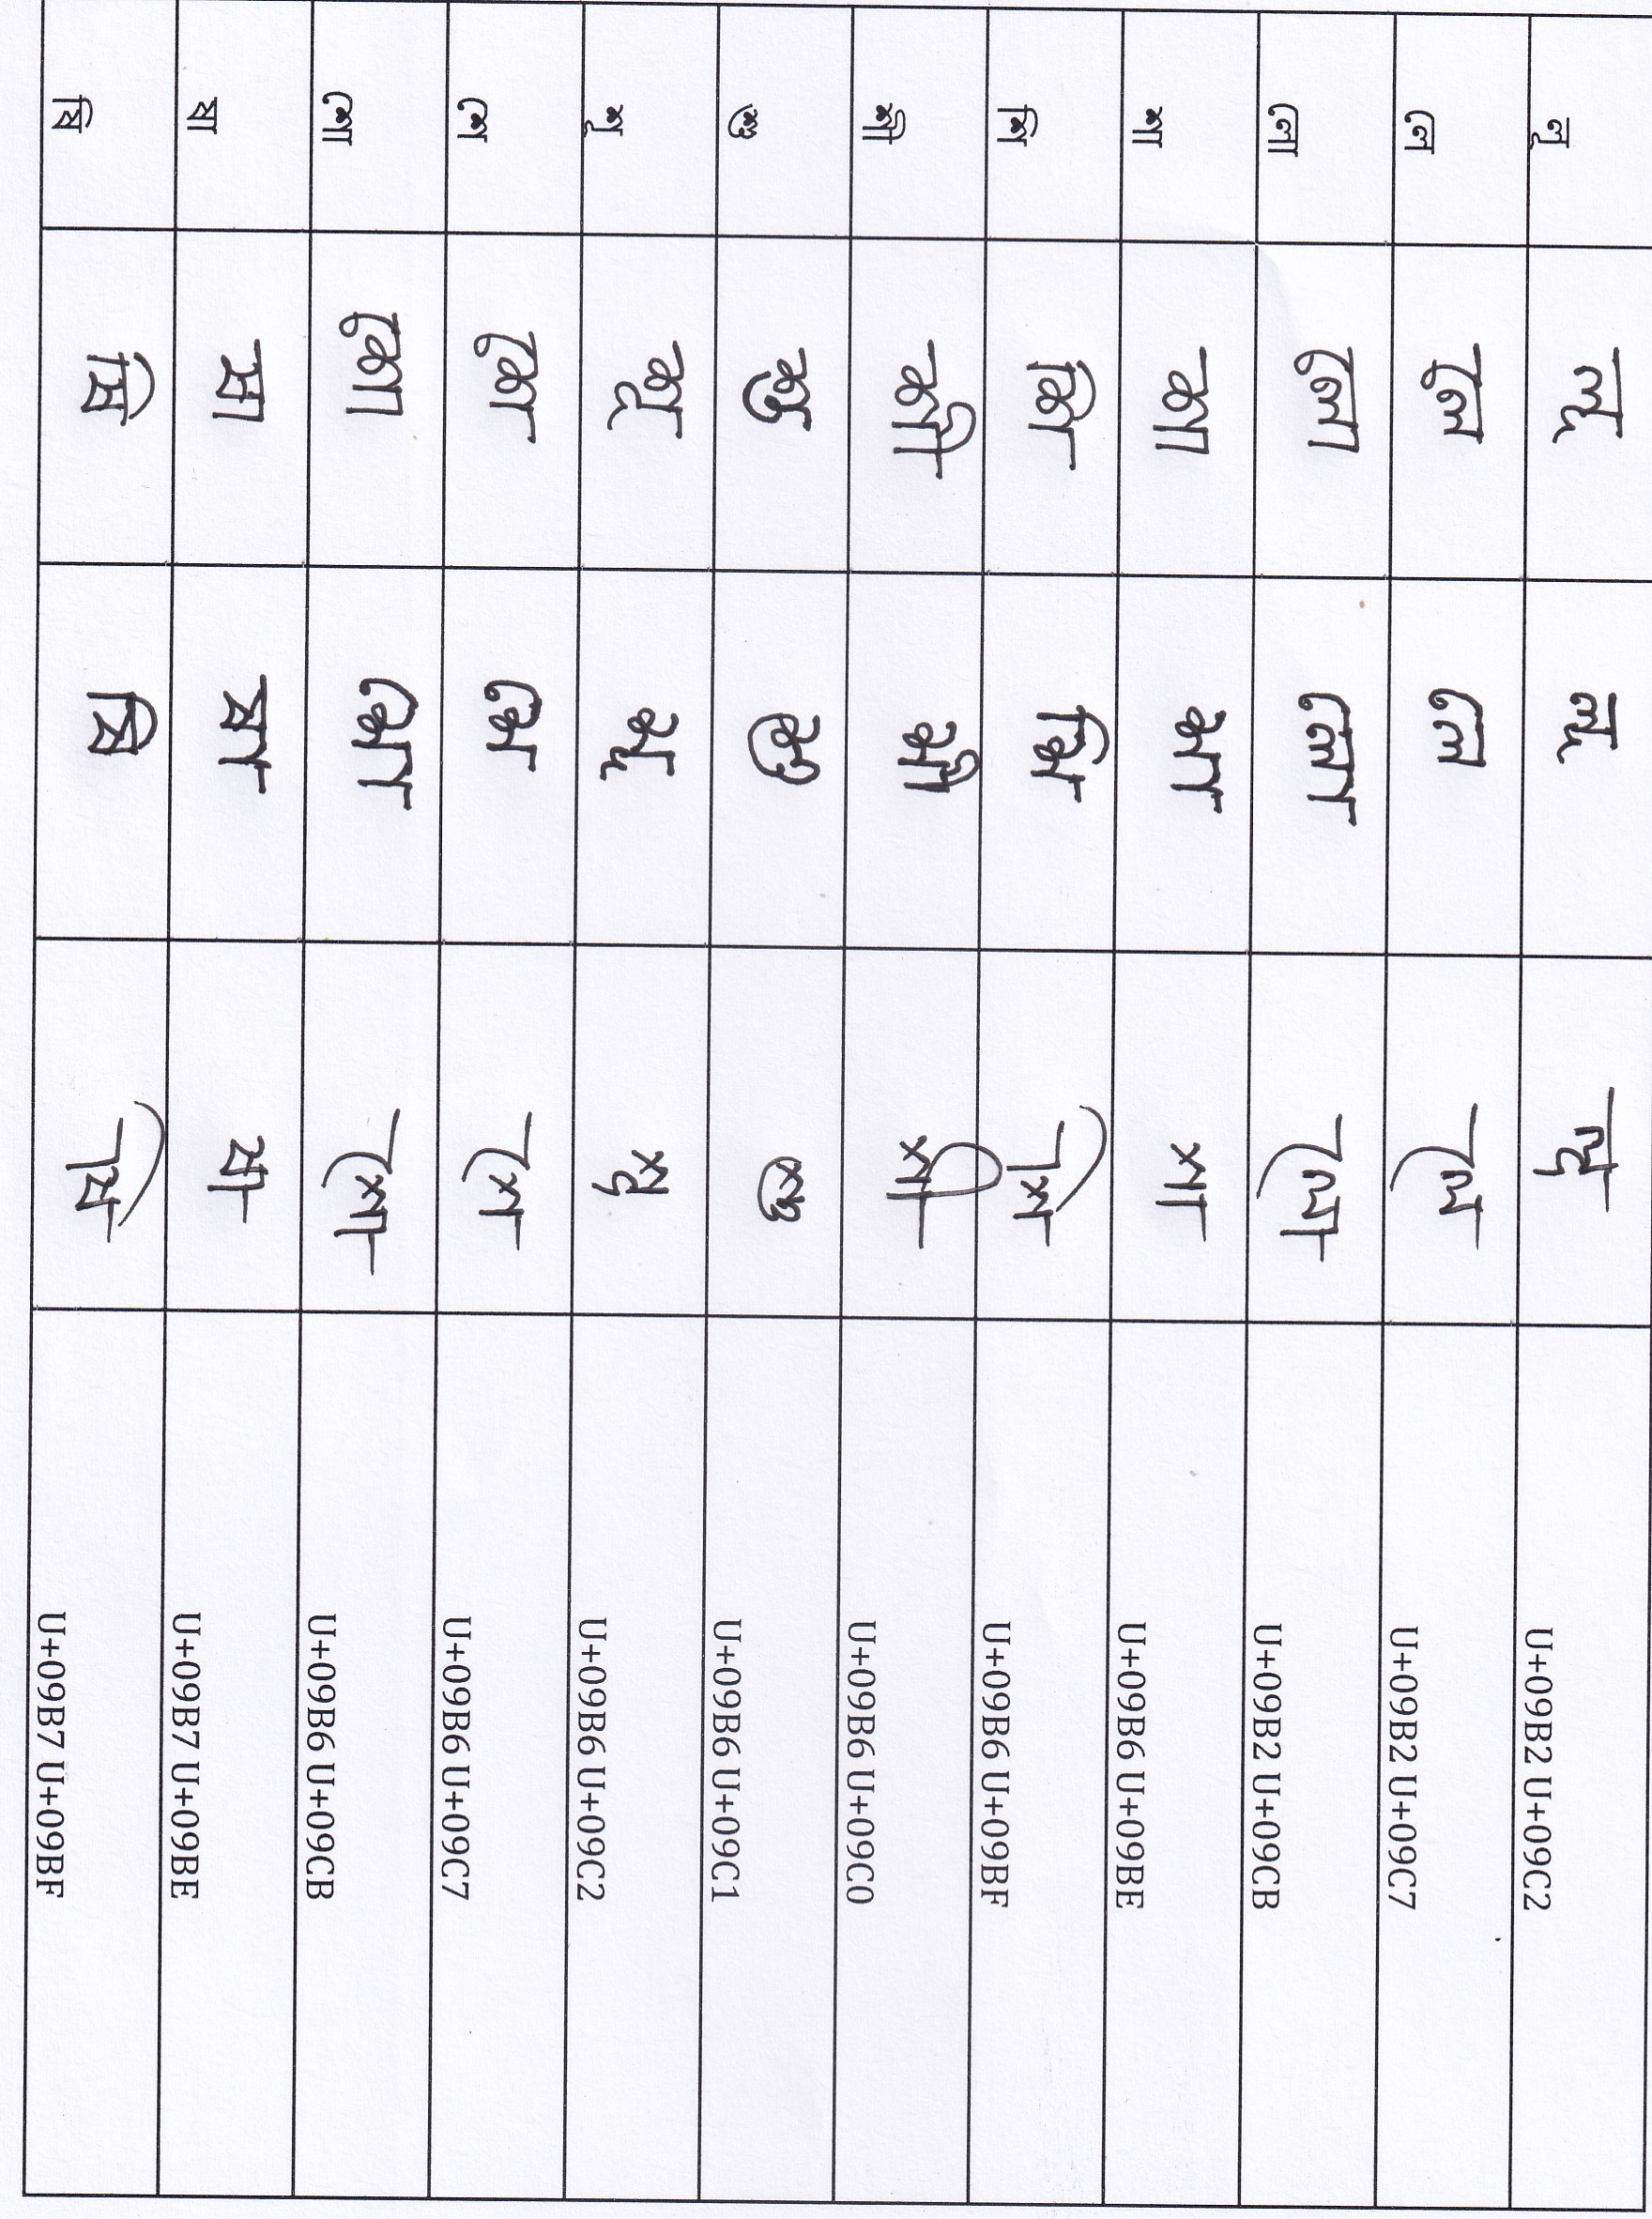 লূ লূ লূ লূ U+09B2 U+09C2
লে লে লে লে U+09B2 U+09C7
লো লো লো লো U+09B2 U+09CB
শা শা শা শা U+09B6 U+09BE
শি শি শি শি U+09B6 U+09BF
শী শী শী শী U+09B6 U+09C0
শু শু শু শু U+09B6 U+09C1
শূ শূ শূ শূ U+09B6 U+09C2
শে শে শে শে U+09B6 U+09C7
শো শো শো শো U+09B6 U+09CB
ষা ষা ষা ষা U+09B7 U+09BE
ষি ষি ষি ষি U+09B7 U+09BF